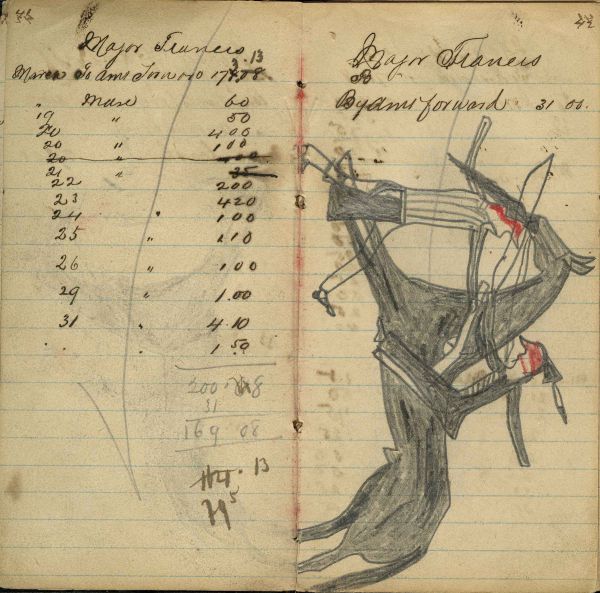 42
Major Francis
3.13
March To amt Forward 17 .08
" Mdse 60
19 " 50
20 " 400
20 " 100
20 " 100
21 " 35
22 200
23 420
24 " 1.00
25 " 110
26 " 1.00
29 " 1.00
31 " 4.10
" " 1.50
200.
31
169 08
13
42
Major Francis
By amt forward 31 00.